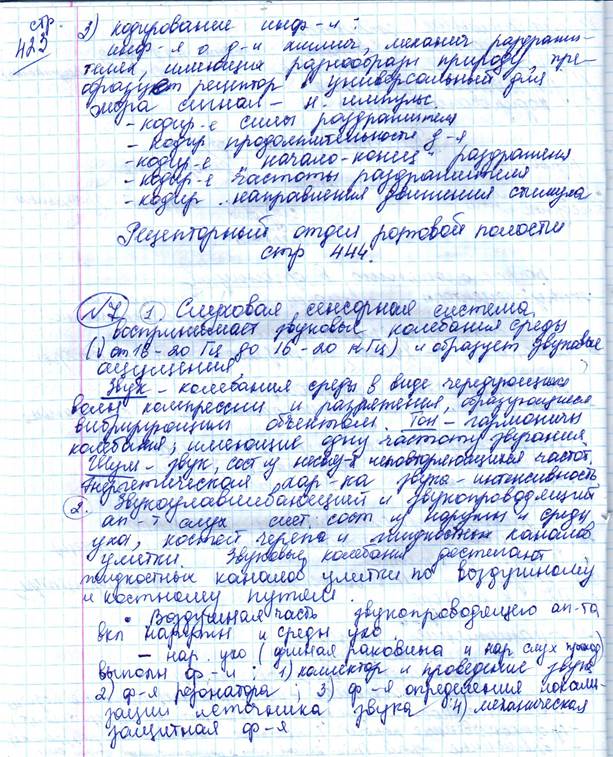 стр.
423
3) кодирование инф-и:
инф-я о д-и химич, механич раздражи-
телей, имеющих разнообразн природу, пре-
образует рецептор в универсальный для
мозга сигнал - н. импульс.
- кодир-е силы раздражителя
- кодир продолжительности д-я
- кодир-е начало-конец раздражения
- кодир-е частоты раздражителя
- кодир. направления движения стимула
Рецепторный отдел ротовой полости
стр 444.
№7 1 Слуховая сенсорная система
воспринимает звуковые колебания среды
(√ от 16-20 Гц до 16-20 кГц) и образует звуковые
ощущения.
Звук - колебания среды в виде чередующихся
волн компрессии и разрежения, образующиеся
вибрирующим объектом. Тон - гармоничн
колебания, имеющие одну частоту звучания
Шум - звук, сост из неповторяющихся частот.
Энергетическая хар-ка звука - интенсивность
2. Звукоулавливающий и звукопроводящий
ап-т слух сист. сост из наружн и средн
уха, костей черепа и жидкостных каналов
улитки. Звуковые колебания достигают
жидкостных каналов улитки по воздушному
и костному путям.
• Воздушная часть звукопроводящего ап-та
вкл наружн и средн ухо.
- нар. ухо (ушная раковина и нар слух проход)
выполн ф-и: 1) коллектор и проведение звука
2) ф-я резонатора; 3) ф-я определения локали-
зации источника звука 4) механическая
защитная ф-я